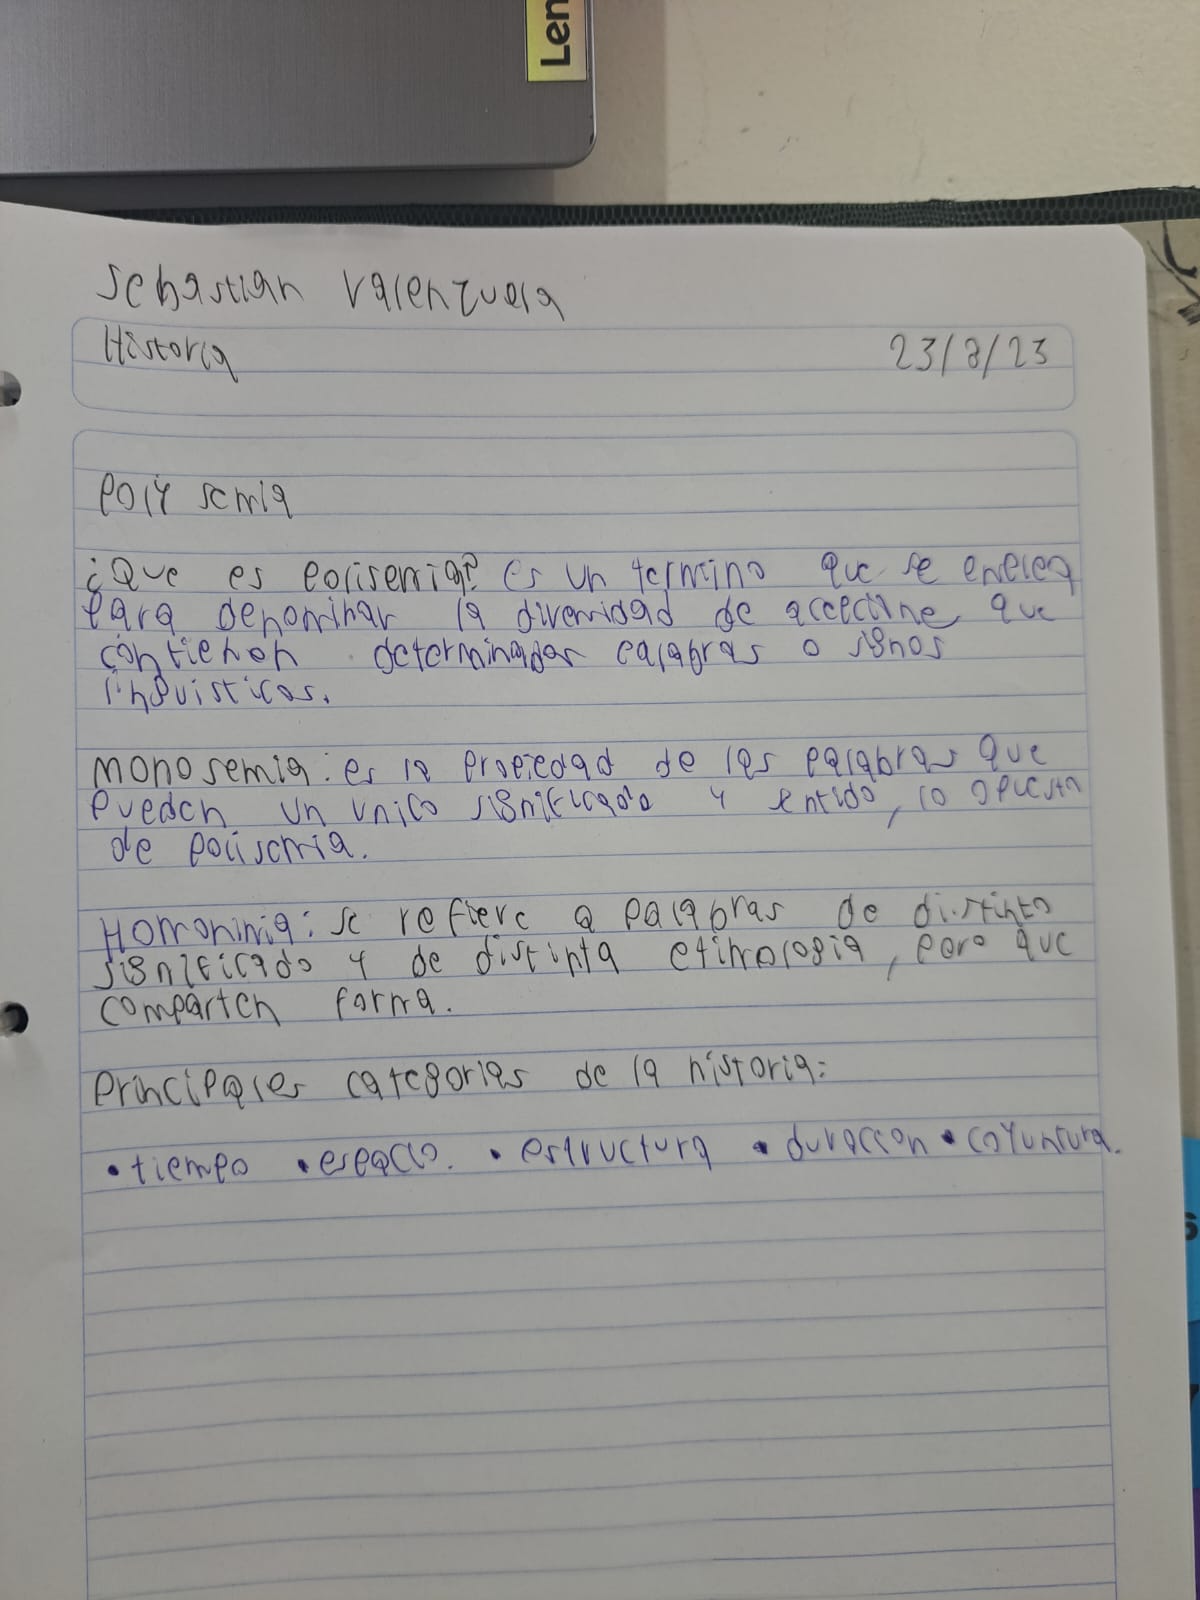 Len
Sebastian Valenzuela
Historia 23/8/23
Poly semia
¿Que es polisemia? es un termino que se emplea
para denominar la diversidad de que
contienen determinadas palabras o signos
linguisticos.
Monosemia: es la propiedad de las palabras que
pueden un unico significado y sentido, lo opuesto
de polisemia.
Homonimia: se refiere a palabras de distinto
significado y de distinta etimologia, pero que
comparten forma.
Principales categorias de la historia:
• tiempo • espacio. • estructura • duraccion • coyuntura.